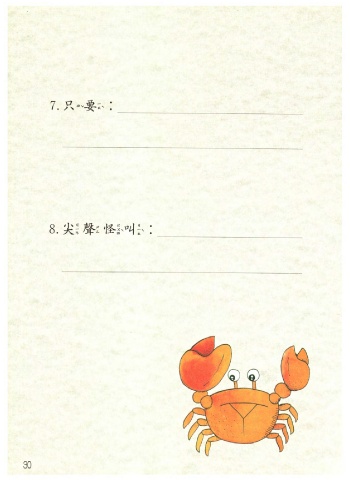 7. 只要：
8. 尖聲怪叫：
30